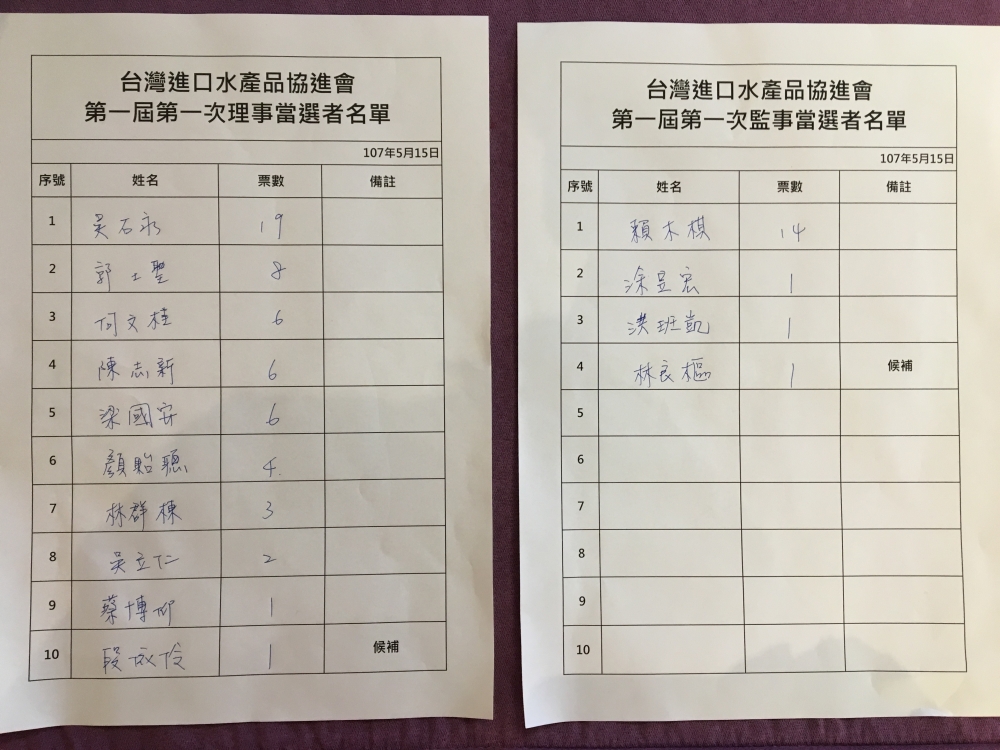 台灣進口水產品協進會
第一屆第一次理事當選者名單
107年5月15日
序號 姓名 票數 備註
1 吳石永 19
2 郭士聖 8
3 何文桂 6
4 陳志新 6
5 梁國安 6
6 顏貽聰 4
7 林群棟 3
8 吳立仁 2
9 蔡博仰 1
10 段 1 候補
台灣進口水產品協進會
第一屆第一次監事當選者名單
107年5月15日
序號 姓名 票數 備註
1 賴木棋 14
2 涂昱宏 1
3 洪班凱 1
4 林良樞 1 候補
5
6
7
8
9
10